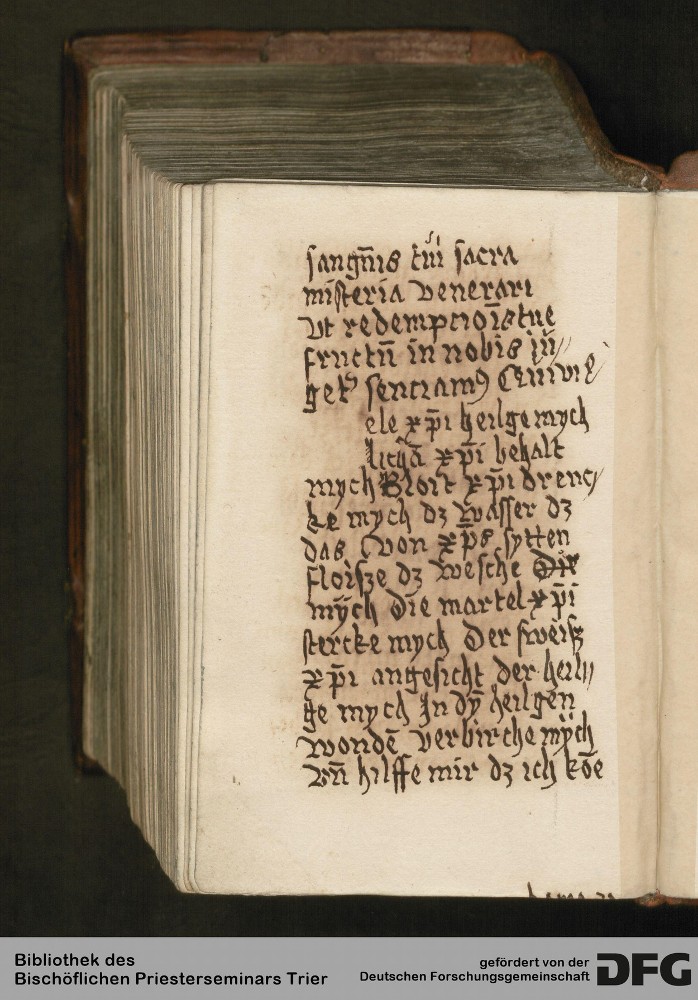 sangñis túi sacra
misteria venerari
vt redempcioīs tue
fructū in nobis iu᷑//
get᷑ senciamꝰ Qui vi
ele xp̄i heilge mych
lichā xp̄i behalt
mych Bloit xp̄i drenc/
ke mych dz wasser dz
das von xp̄s sytten
floisze dz wesche die
mÿch die martel xp̄i
stercke mych Der sweisz
xp̄i angesicht der heili//
ge mych In dȳ heilgen
wondē verbirche mÿch
vn̄ hilffe mir dz ich kōe
Bibliothek des
Bischöflichen Priesterseminars Trier
gefördert von der
Deutschen Forschungsgemeinschaft
DFG